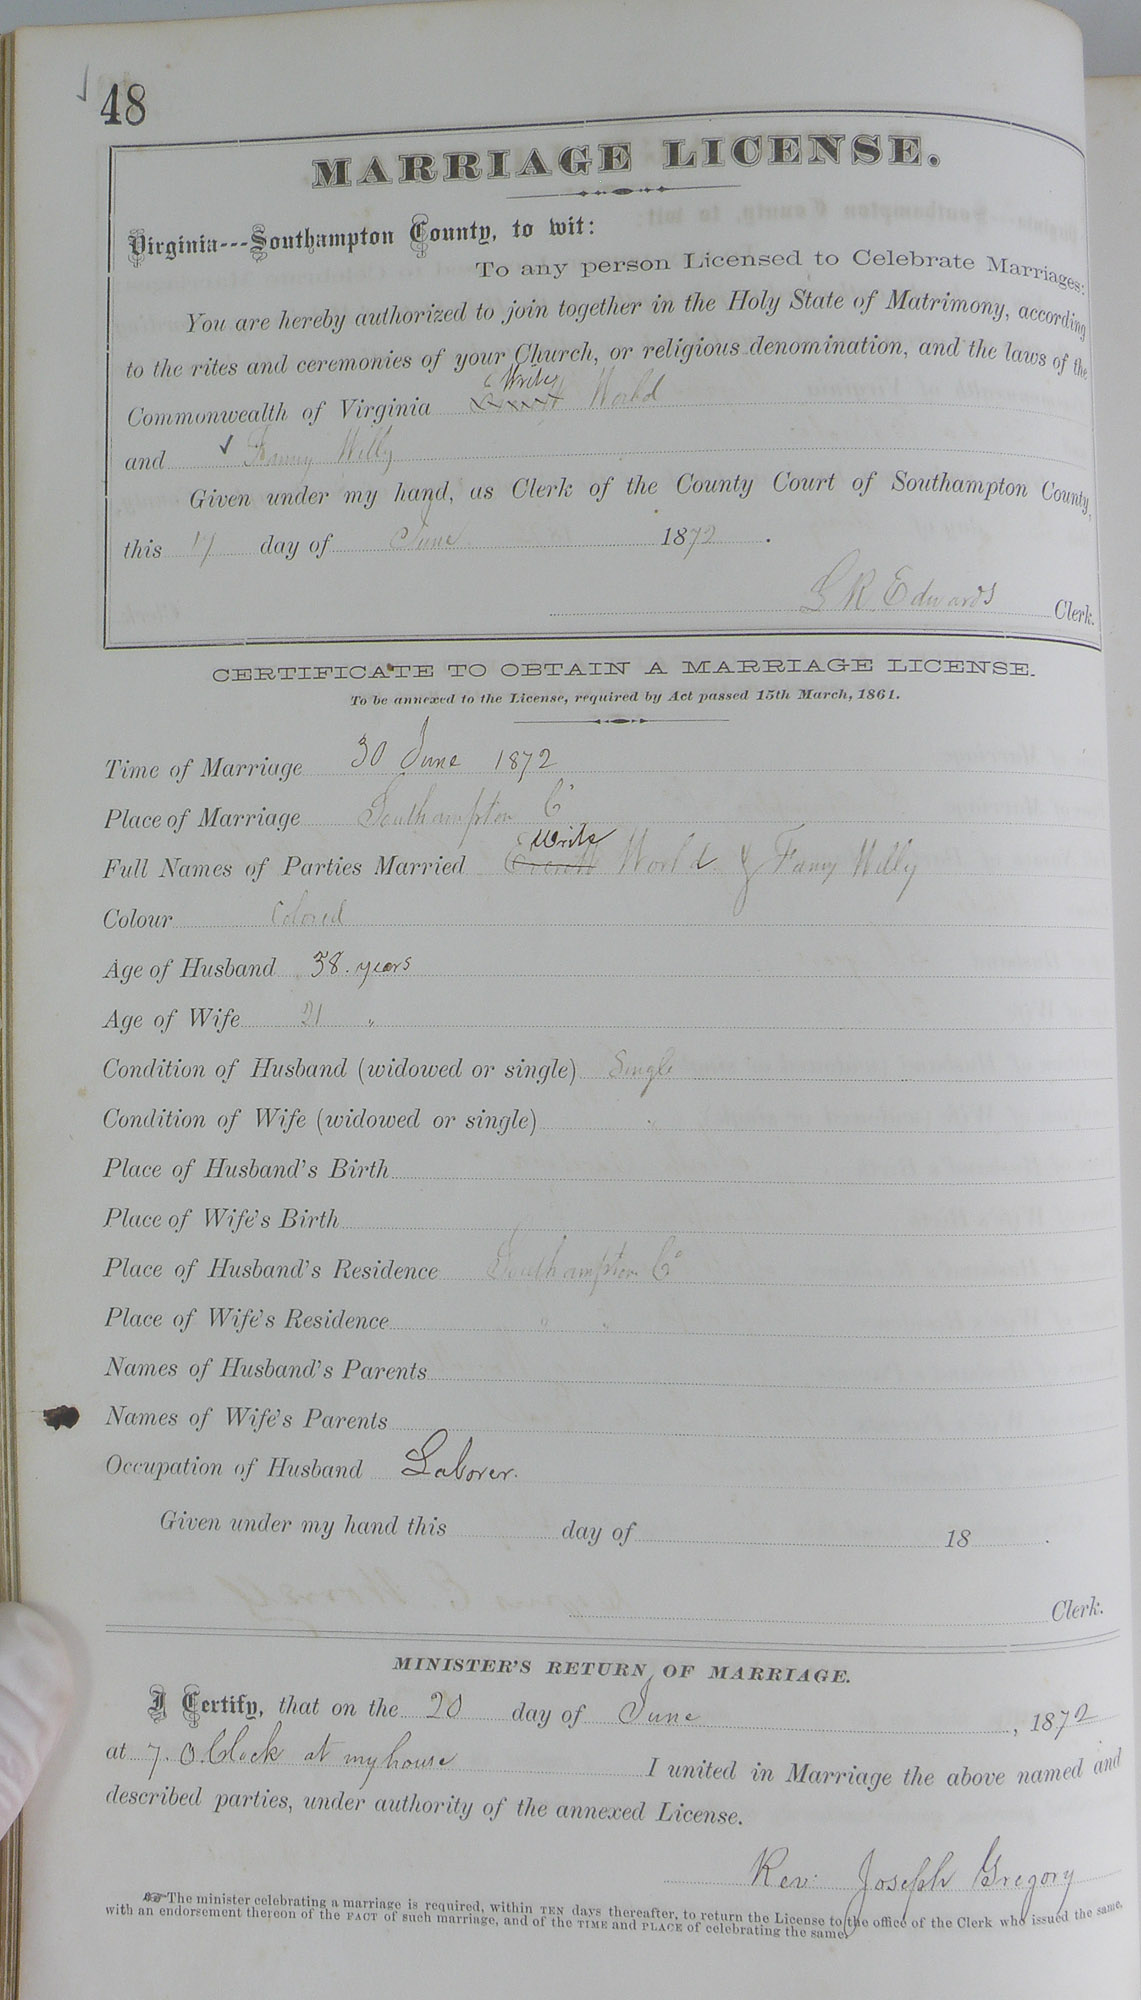 48
MARRIAGE LICENSE.
Virginia---Southampton County, to wit:
To any person Licensed to Celebrate Marriages:
You are hereby authorized to join together in the Holy State of Matrimony, according
to the rites and ceremonies of your Church, or religious denomination, and the laws of the
Wriley
Commonwealth of Virginia World
and Fanny Willy
Given under my hand, as Clerk of the County Court of Southampton County,
this 17 day of June 1872.
G R Edwards Clerk.
CERTIFICATE TO OBTAIN A MARRIAGE LICENSE.
To be annexed to the License, required by Act passed 15th March, 1861.
Time of Marriage 30 June 1872
Place of Marriage Southampton Co
Full Names of Parties Married Everett World & Fanny Willy
Colour Colored
Age of Husband 38. years
Age of Wife 21 "
Condition of Husband (widowed or single) Single
Condition of Wife (widowed or single) "
Place of Husband's Birth
Place of Wife's Birth
Place of Husband's Residence Southampton Co
Place of Wife's Residence " "
Names of Husband's Parents
Names of Wife's Parents
Occupation of Husband Laborer.
Given under my hand this day of 18 .
Clerk.
MINISTER'S RETURN OF MARRIAGE.
I Certify, that on the 20 day of June, 1872
at 7. O Clock at my house I united in Marriage the above named and
described parties, under authority of the annexed License.
Rev: Joseph Gregory
The minister celebrating a marriage is required, within TEN days thereafter, to return the License to the office of the Clerk who issued the same,
with an endorsement thereon of the FACT of such marriage, and of the TIME and PLACE of celebrating the same.